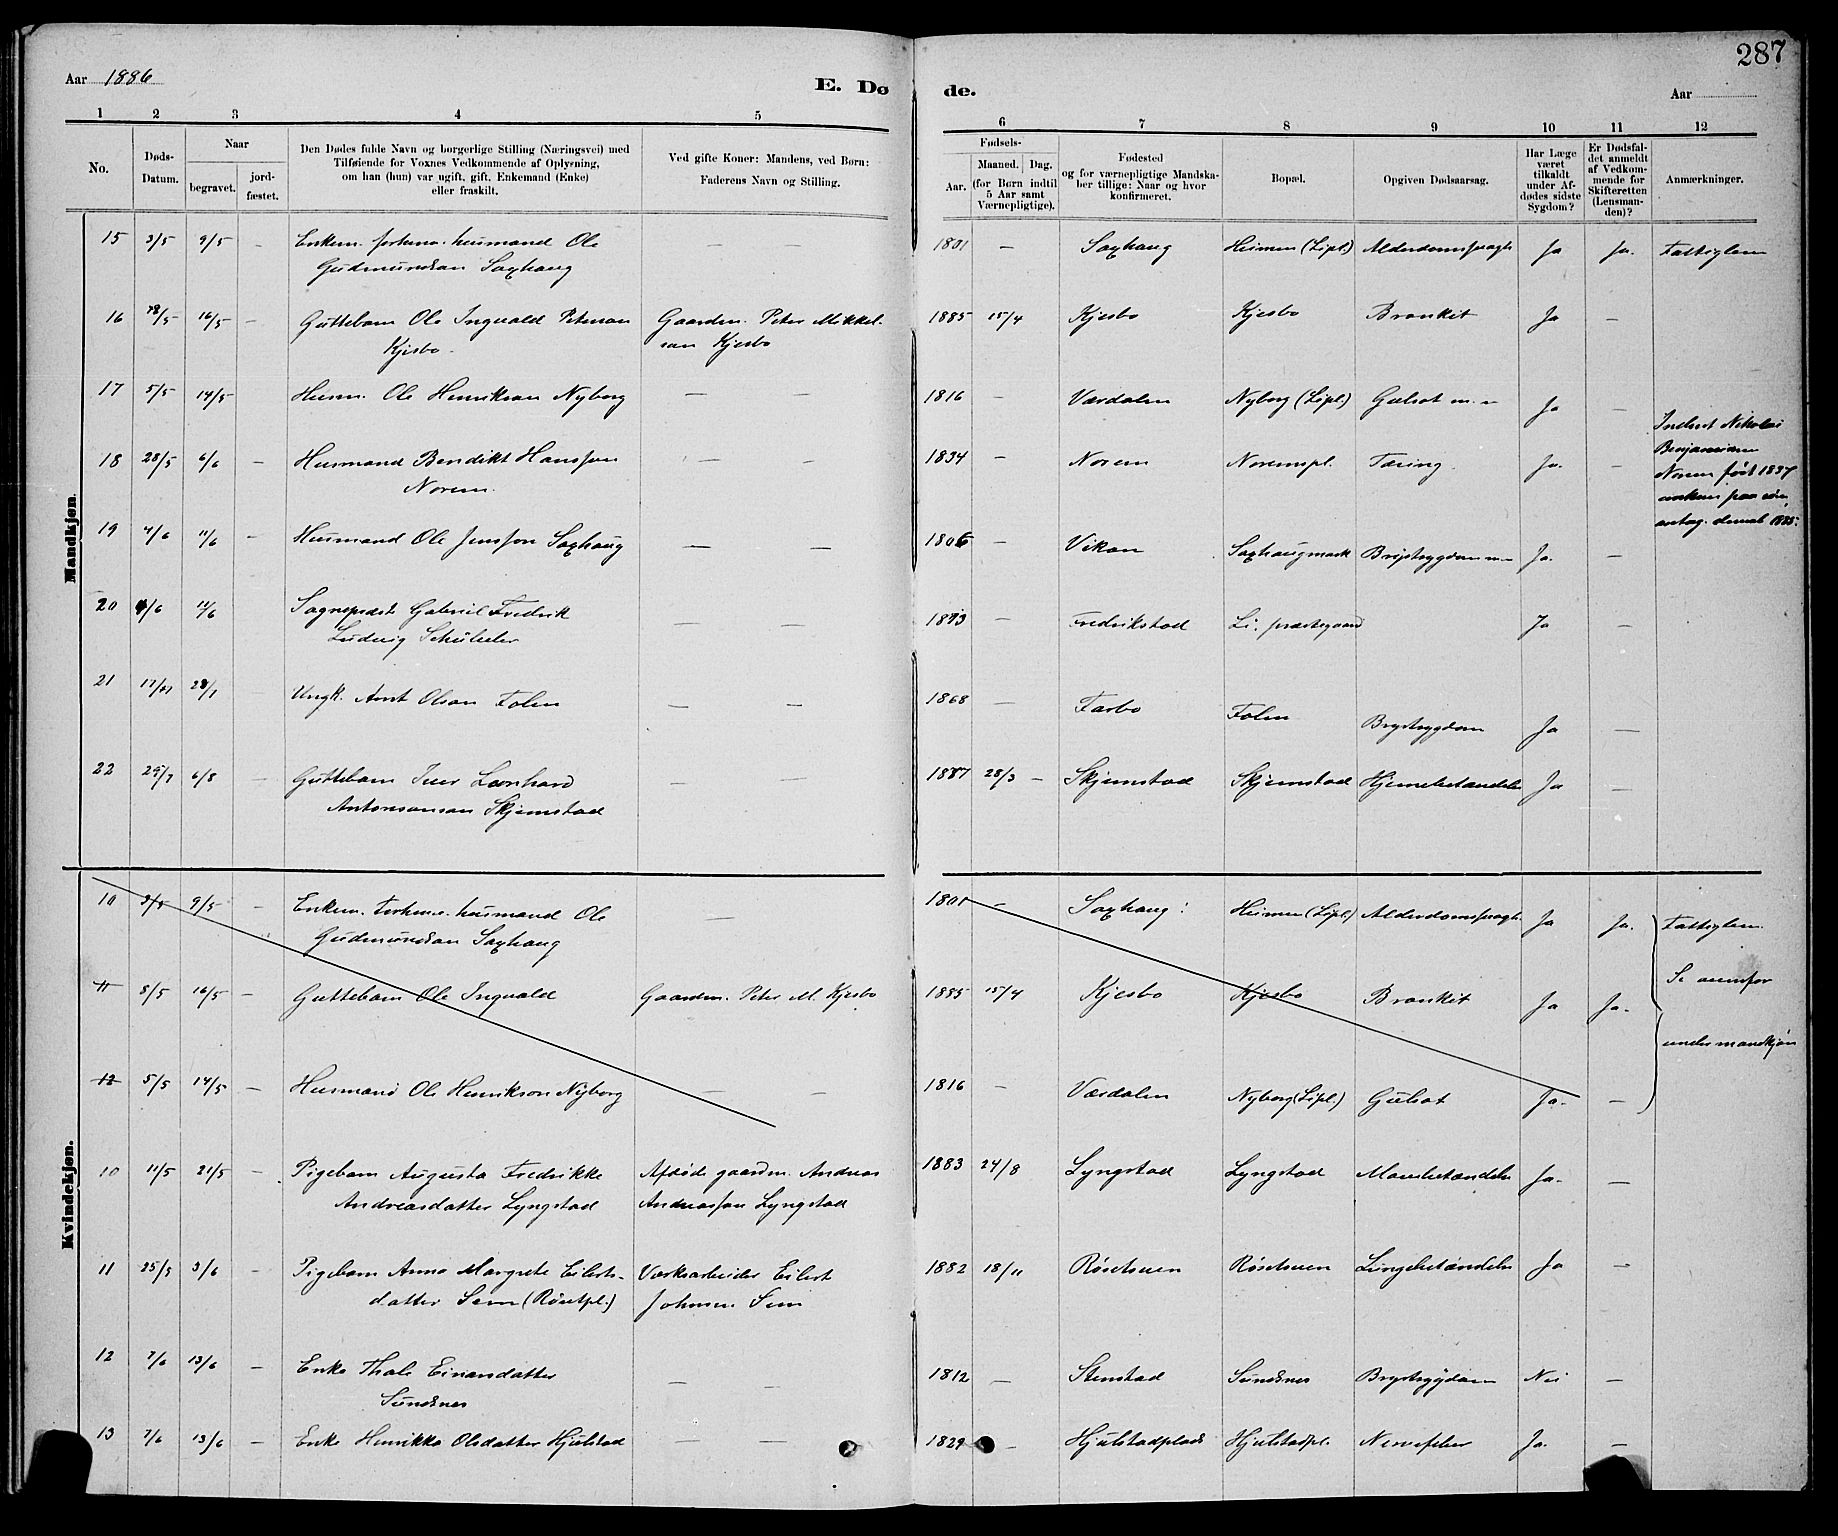 287
Aar 1886
E. Dø
de.
Aar
1 2 3 4 5
6 7 8 9 10 11 12
No.
Døds-
Datum.
Naar
begravet.
jord-
fæstet.
Den Dødes fulde Navn og borgerlige Stilling (Næringsvei) med
Tilføiende for Voxnes Vedkommende af Oplysning,
om han (hun) var ugift, gift, Enkemand (Enke)
eller fraskilt.
Ved gifte Koner: Mandens, ved Børn:
Faderens Navn og Stilling.
Fødsels-
Aar.
Maaned. Dag.
(for Børn indtil
5 Aar samt
Værnepligtige).
Fødested
og for værnepligtige Mandska-
ber tillige: Naar og hvor
konfirmeret.
Bopæl.
Opgiven Dødsaarsag.
Har Læge
været
tilkaldt
under Af-
dødes sidste
Sygdom?
Er Dødsfal-
det anmeldt
af Vedkom-
mende for
Skifteretten
(Lensman-
den)?
Anmærkninger.
Mandkjøn.
15 3/5 9/5 — Enkem. forhenv. husmand Ole — — 1801 — Saxhaug Heimen (Lipl.) Alderdomssvagh. Ja Ja. Fattiglem
Gudmundsan Saxhaug
16 /5 16/5 — Guttebarn Ole Ingvald Peterson Gaardm. Peter Mikkel- 1885 15/4 Kjesbo Kjesbo Bronkit Ja —
Kjesbo. san Kjesbo
17 5/5 14/5 Husm. Ole Henrikson Nyborg — — 1816 — Værdalen Nyborg (Lipl.) Gulsot Ja —
18 28/5 6/6 — Husmand Bendikt Hansson — — 1834 — Norem Noremspl. Tæring. Ja. —
Norem.
Indført Nikolai
Norem født 1837
1885.
19 4/6 11/6 — Husmand Ole Jensson Saxhaug — — 1806 — Vikan Saxhaugmark Brystsygdom Ja. —
20 /6 /6 Sogneprest Gabriel Fredrik — — Fredrikstad Li. præstegaard Ja —
Ludvig Schübeler
21 17/ 28/7 Ungk. Arnt Olson Folen — — 1868 — Tarbo Folen Brystsygdom Ja —
22 29/7 6/8 — Guttebarn Iver Leonhard — — 1887 28/3 — Skjemstad Skjemstad Hjernebetændelse Ja —
Antonsonsan Skjemstad
Kvindekjøn.
10 3/5 9/5 — Enkem. Forhenv. husmand Ole — 1801 — Saxhaug Heimen (Lipl.) Alderdomssvagh. Ja Ja. Fattiglem.
Gudmundsan Saxhaug
11 8/5 16/5 — Guttebarn Ole Ingvald Gaardm. Peter M. Kjesbo 1885 15/4 Kjesbo Kjesbo Bronkit Ja Ja. Se ovenfor
under mandkjøn
12 5/5 14/5 — Husmand Ole Henrikson Nyborg — — 1816 — Værdalen Nyborg (Lipl.) Gulsot Ja. —
10 11/5 21/5 — Pigebarn Augusta Fredrikke Afdøde gaardm. Andreas 1883 24/8 Lyngstad Lyngstad Mavebetændelse Ja. —
Andreasdatter Lyngstad Andreassen Lyngstad
11 25/5 3/6 — Pigebarn Anna Margrete Eilerts- Værksarbeider Eilert 1882 18/11 Røsetsuen Røsetsuen Lungebetændelse Ja —
datter Sem (Røsetpl.) Johnsen Sem
12 7/6 13/6 — Enke Thale Einarsdatter — — 1812 — Stenstad Sundsnes Brystsygdom Nei —
Sundsnes
13 7/6 13/6 — Enke Henrikka Olsdatter Hjulstad — — 1829 — Hjulstadplads Hjulstadpl. Nervefeber Ja. —